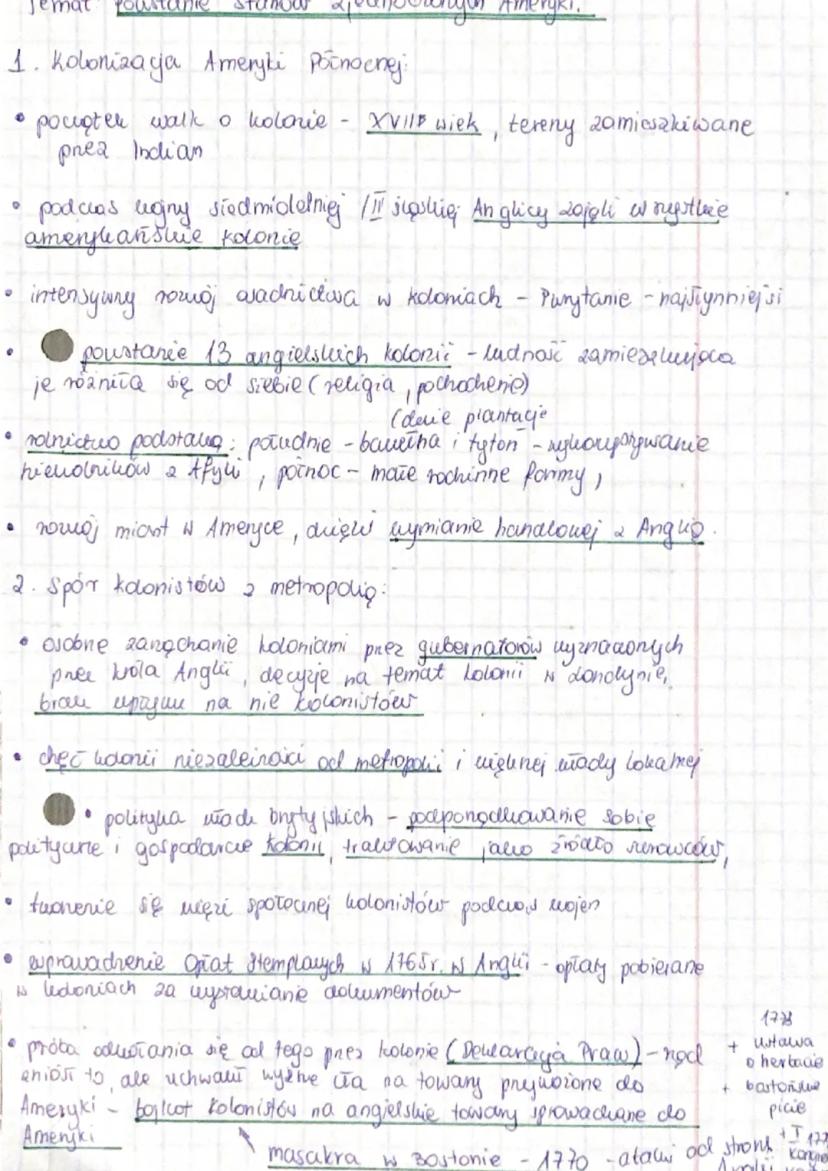 Temat powstanie Stanów Zjednoczonych Ameryki.
1. Kolonizacja Ameryki Północnej:
• początek walk o kolonie - XVIII wiek, tereny zamieszkiwane
przez Indian
• podczas wojny siedmioletniej / II śląskiej Anglicy zajęli wszystkie
amerykańskie kolonie
• intensywny rozwój osadnictwa w koloniach - Purytanie - najsłynniejsi
• powstanie 13 angielskich kolonii - ludność zamieszkująca
je różniła się od siebie (religia, pochodzenie)
(duże plantacje
• rolnictwo podstawą: południe - bawełna i tytoń - wykorzystywanie
niewolników z Afryki, północ - małe rodzinne formy,
• rozwój miast w Ameryce, dzięki wymianie handlowej z Anglią.
2. Spór kolonistów z metropolią:
• osobne zarządzanie koloniami przez gubernatorów wyznaczonych
przez króla Anglii, decyzje na temat kolonii w Londynie,
brak wpływu na nie kolonistów
• chęć kolonii niezależności od metropolii i większej władzy lokalnej
• polityka władz brytyjskich - podporządkowanie sobie
politycznie i gospodarczo kolonii, traktowanie jako źródło surowców,
• tworzenie się więzi społecznej kolonistów podczas wojen
• wprowadzenie opłat stemplowych w 1765r. w Anglii - opłaty pobierane
w koloniach za wystawianie dokumentów
• próba odwołania się od tego przez kolonie (Deklaracja Praw) - rząd
zniósł to, ale uchwalił wyższe cła na towary przywożone do
Ameryki - bojkot kolonistów na angielskie towary sprowadzane do
Ameryki
1773
+ ustawa
o herbacie
+ bostońskie
picie
+ I
masakra w Bostonie - 1770 - ataki od strony